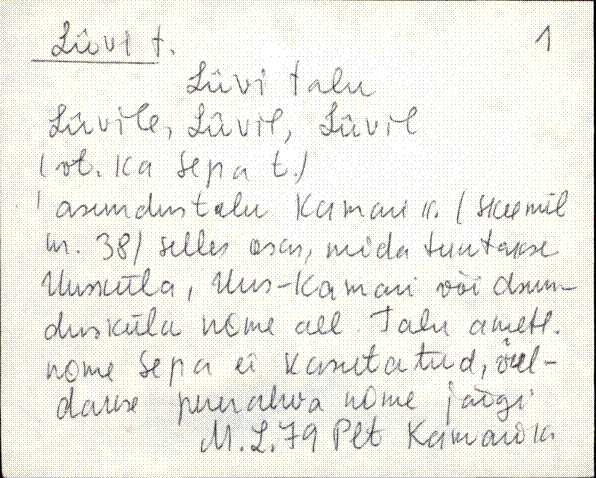 Lüvi t. 1
Lüvi talu
Lüvile, Lüvil, Lüvil
(vt. ka Sepa t.)
asundustalu Kamari k. (skeemil
nr. 38) selles osas, mida tuntakse
Uusküla, Uus-Kamari või asun-
dusküla nime all. Talu ametl.
nime Sepa ei kasutatud, üel-
dakse pererahva nime järgi
M.L. 79 Plt Kamari k